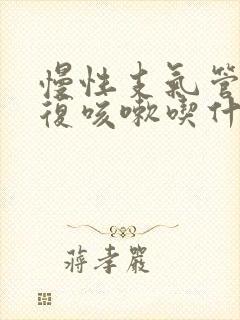 慢性支氣管
復咳嗽喫什
蔣孝嚴